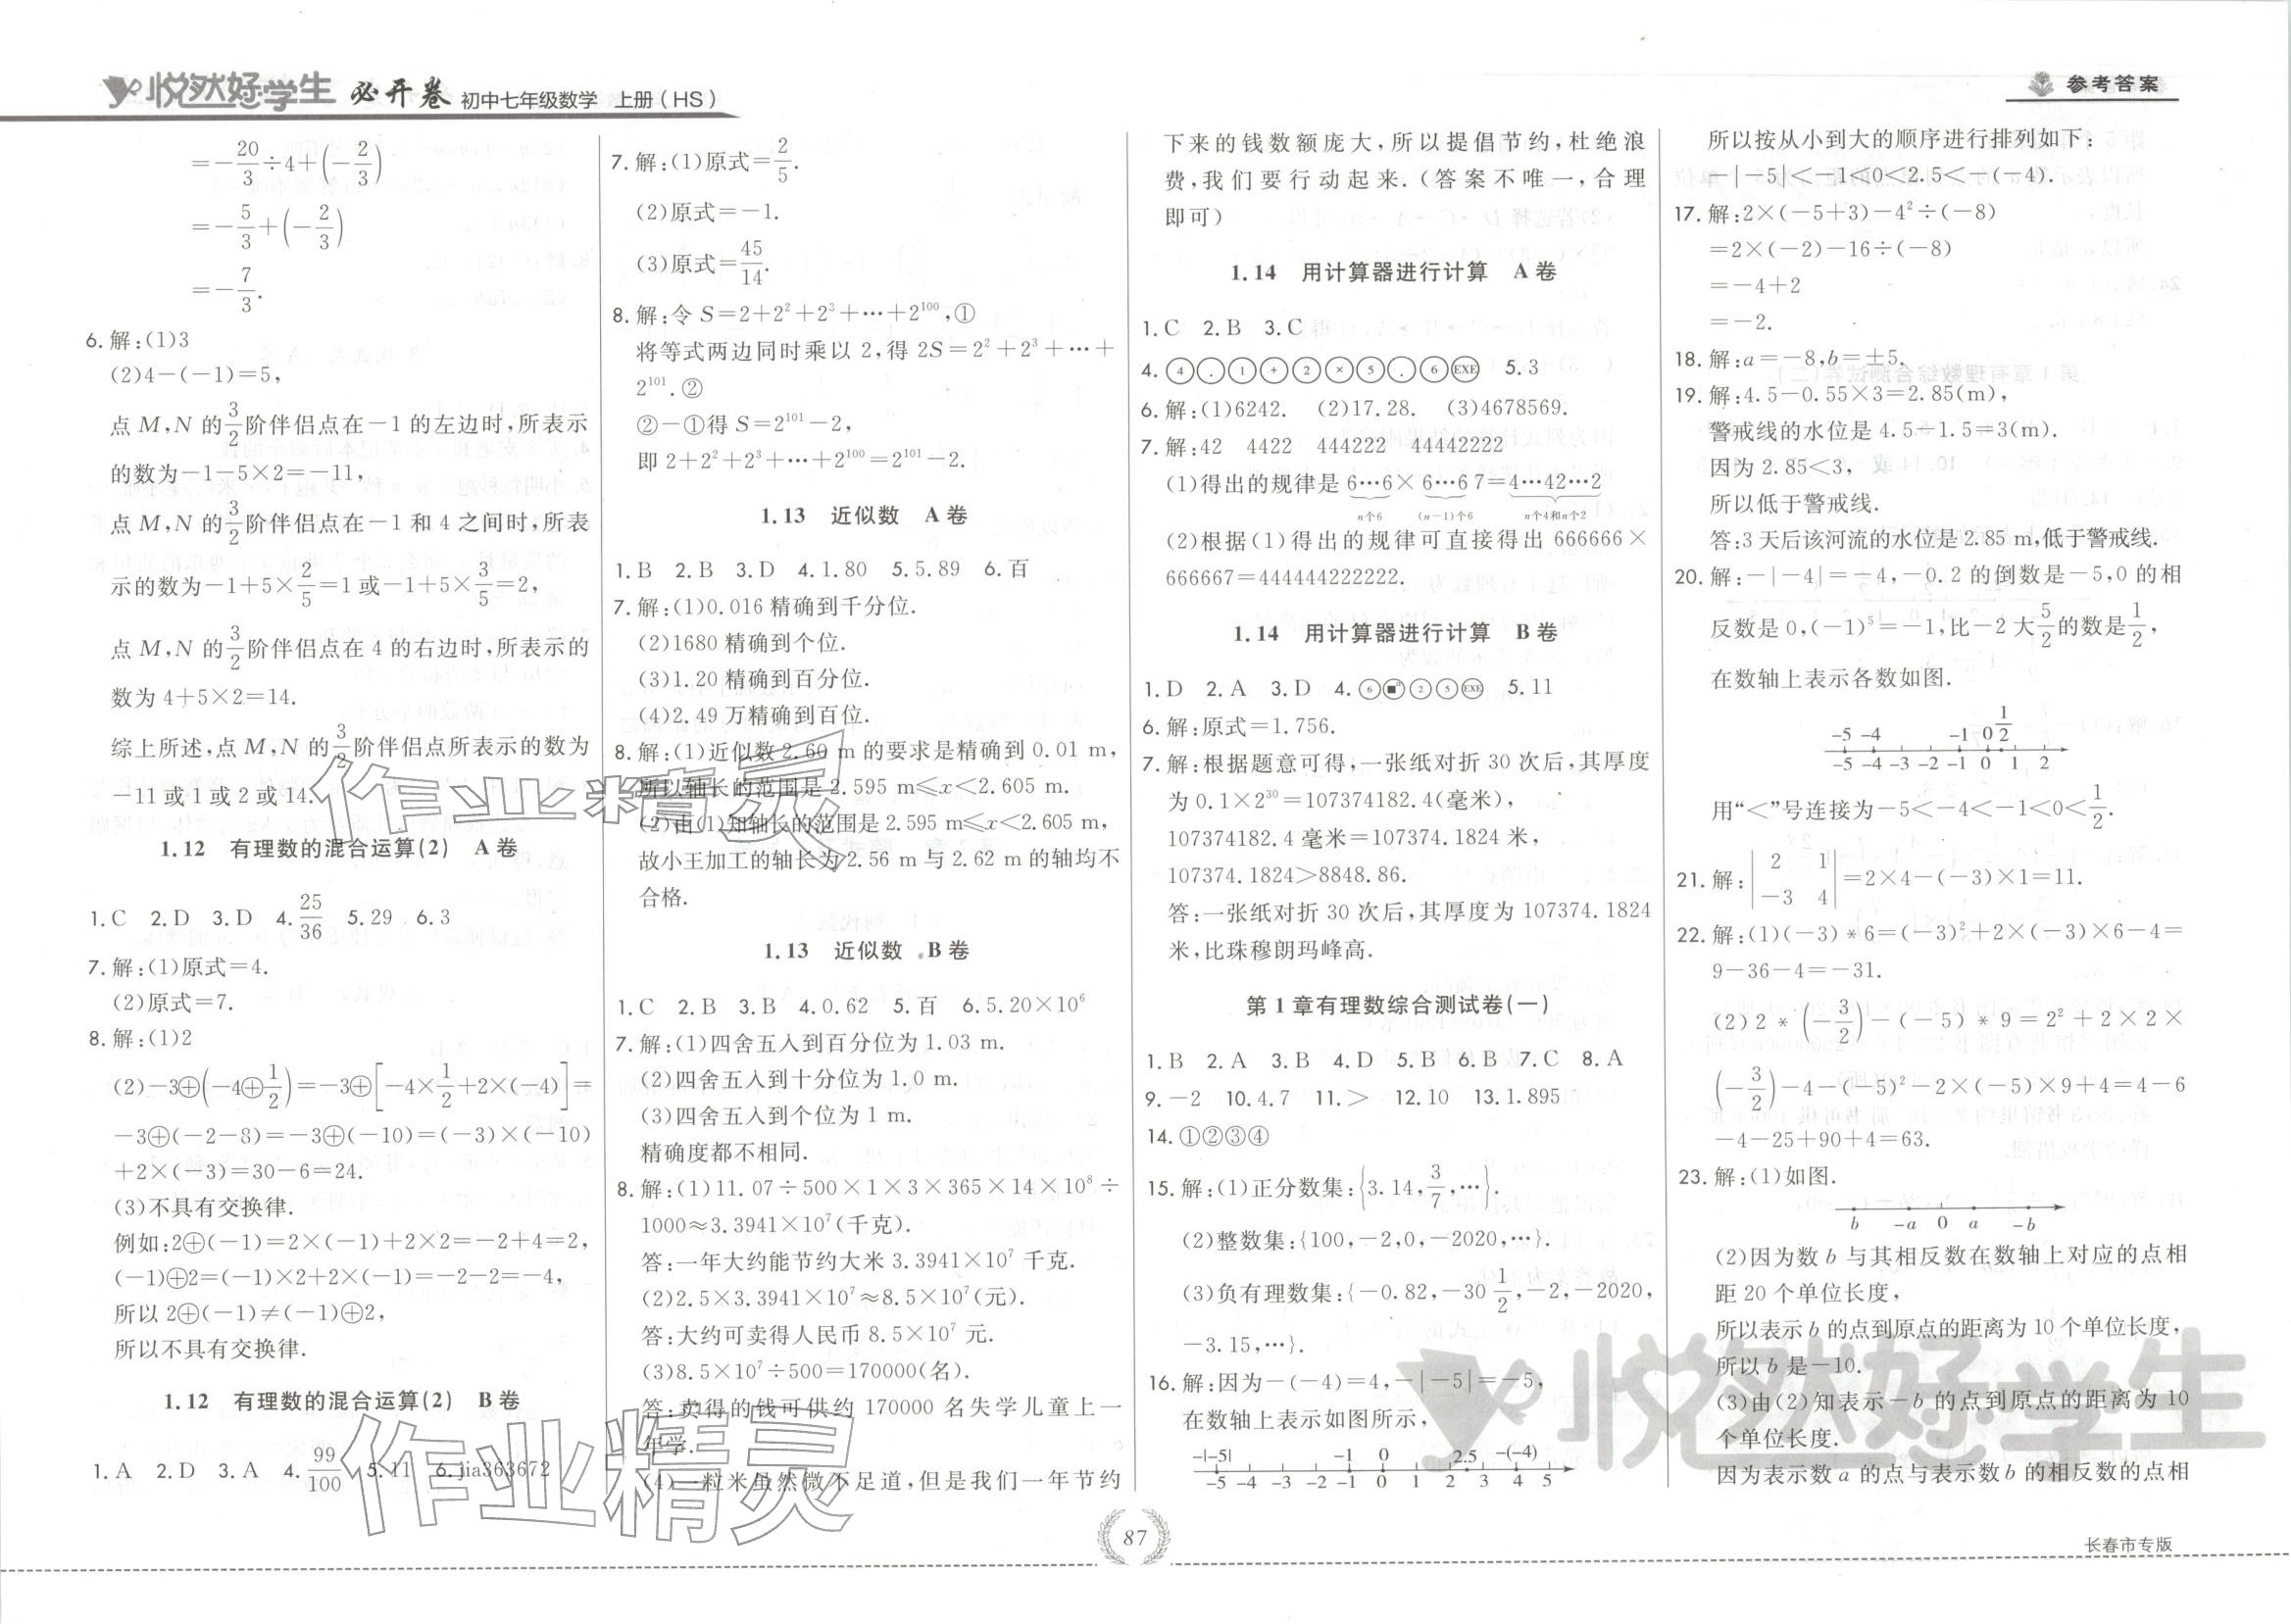 悦然好学生 必开卷 初中七年级数学 上册(HS)
参考答案
=-20/3÷4+(-2/3)
=-5/3+(-2/3)
=-7/3.
6.解:(1)3
(2)4-(-1)=5,
点M,N的3/2阶伴侣点在-1的左边时,所表示
的数为-1-5×2=-11,
点M,N的3/2阶伴侣点在-1和4之间时,所表
示的数为-1+5×2/5=1或-1+5×3/5=2,
点M,N的3/2阶伴侣点在4的右边时,所表示的
数为4+5×2=14.
综上所述,点M,N的3/2阶伴侣点所表示的数为
-11或1或2或14.
1.12 有理数的混合运算(2) A卷
1.C 2.D 3.D 4.25/36 5.29 6.3
7.解:(1)原式=4.
(2)原式=7.
8.解:(1)2
(2)-3⊕(-4⊕1/2)=-3⊕[-4×1/2+2×(-4)]=
-3⊕(-2-8)=-3⊕(-10)=(-3)×(-10)
+2×(-3)=30-6=24.
(3)不具有交换律.
例如:2⊕(-1)=2×(-1)+2×2=-2+4=2,
(-1)⊕2=(-1)×2+2×(-1)=-2-2=-4,
所以2⊕(-1)≠(-1)⊕2,
所以不具有交换律.
1.12 有理数的混合运算(2) B卷
1.A 2.D 3.A 4.99/100 5.11 6.jia363672
7.解:(1)原式=2/5.
(2)原式=-1.
(3)原式=45/14.
8.解:令S=2+2²+2³+…+2¹⁰⁰,①
将等式两边同时乘以2,得2S=2²+2³+…+
2¹⁰¹.②
②-①得S=2¹⁰¹-2,
即2+2²+2³+…+2¹⁰⁰=2¹⁰¹-2.
1.13 近似数 A卷
1.B 2.B 3.D 4.1.80 5.5.89 6.百
7.解:(1)0.016精确到千分位.
(2)1680精确到个位.
(3)1.20精确到百分位.
(4)2.49万精确到百位.
8.解:(1)近似数2.60 m的要求是精确到0.01 m,
所以轴长的范围是2.595 m≤x<2.605 m.
(2)由(1)知轴长的范围是2.595 m≤x<2.605 m,
故小王加工的轴长为2.56 m与2.62 m的轴均不
合格.
1.13 近似数 B卷
1.C 2.B 3.B 4.0.62 5.百 6.5.20×10⁶
7.解:(1)四舍五入到百分位为1.03 m.
(2)四舍五入到十分位为1.0 m.
(3)四舍五入到个位为1 m.
精确度都不相同.
8.解:(1)11.07÷500×1×3×365×14×10⁸÷
1000≈3.3941×10⁷(千克).
答:一年大约能节约大米3.3941×10⁷千克.
(2)2.5×3.3941×10⁷≈8.5×10⁷(元).
答:大约可卖得人民币8.5×10⁷元.
(3)8.5×10⁷÷500=170000(名).
答:卖得的钱可供约170000名失学儿童上一
年学.
(4)一粒米虽然微不足道,但是我们一年节约
下来的钱数额庞大,所以提倡节约,杜绝浪
费,我们要行动起来.(答案不唯一,合理
即可)
1.14 用计算器进行计算 A卷
1.C 2.B 3.C
4.④⊙①⊕②⊗⑤⊙⑥EXE 5.3
6.解:(1)6242. (2)17.28. (3)4678569.
7.解:42 4422 444222 44442222
(1)得出的规律是6…6×6…67=4…42…2
n个6 (n-1)个6 n个4和n个2
(2)根据(1)得出的规律可直接得出666666×
666667=444444222222.
1.14 用计算器进行计算 B卷
1.D 2.A 3.D 4.⑥■②⑤EXE 5.11
6.解:原式=1.756.
7.解:根据题意可得,一张纸对折30次后,其厚度
为0.1×2³⁰=107374182.4(毫米),
107374182.4毫米=107374.1824米,
107374.1824>8848.86.
答:一张纸对折30次后,其厚度为107374.1824
米,比珠穆朗玛峰高.
第1章有理数综合测试卷(一)
1.B 2.A 3.B 4.D 5.B 6.B 7.C 8.A
9.-2 10.4.7 11.> 12.10 13.1.895
14.①②③④
15.解:(1)正分数集:{3.14,3/7,…}.
(2)整数集:{100,-2,0,-2020,…}.
(3)负有理数集:{-0.82,-30 1/2,-2,-2020,
-3.15,…}.
16.解:因为-(-4)=4,-|-5|=-5,
在数轴上表示如图所示,
-|-5| -1 0 2.5 -(-4)
-5 -4 -3 -2 -1 0 1 2 3 4 5
所以按从小到大的顺序进行排列如下:
-|-5|<-1<0<2.5<-(-4).
17.解:2×(-5+3)-4²÷(-8)
=2×(-2)-16÷(-8)
=-4+2
=-2.
18.解:a=-8,b=±5.
19.解:4.5-0.55×3=2.85(m),
警戒线的水位是4.5-1.5=3(m).
因为2.85<3,
所以低于警戒线.
答:3天后该河流的水位是2.85 m,低于警戒线.
20.解:-|-4|=-4,-0.2的倒数是-5,0的相
反数是0,(-1)⁵=-1,比-2大5/2的数是1/2,
在数轴上表示各数如图.
-5 -4 -1 0 1/2
-5 -4 -3 -2 -1 0 1 2
用“<”号连接为-5<-4<-1<0<1/2.
21.解:|2 1
-3 4|=2×4-(-3)×1=11.
22.解:(1)(-3)*6=(-3)²+2×(-3)×6-4=
9-36-4=-31.
(2)2*(-3/2)-(-5)*9=2²+2×2×
(-3/2)-4-(-5)²-2×(-5)×9+4=4-6
-4-25+90+4=63.
23.解:(1)如图.
b -a 0 a -b
(2)因为数b与其相反数在数轴上对应的点相
距20个单位长度,
所以表示b的点到原点的距离为10个单位长度,
所以b是-10.
(3)由(2)知表示-b的点到原点的距离为10
个单位长度.
因为表示数a的点与表示数b的相反数的点相
作业精灵
作业精灵
悦然好学生
87
长春市专版